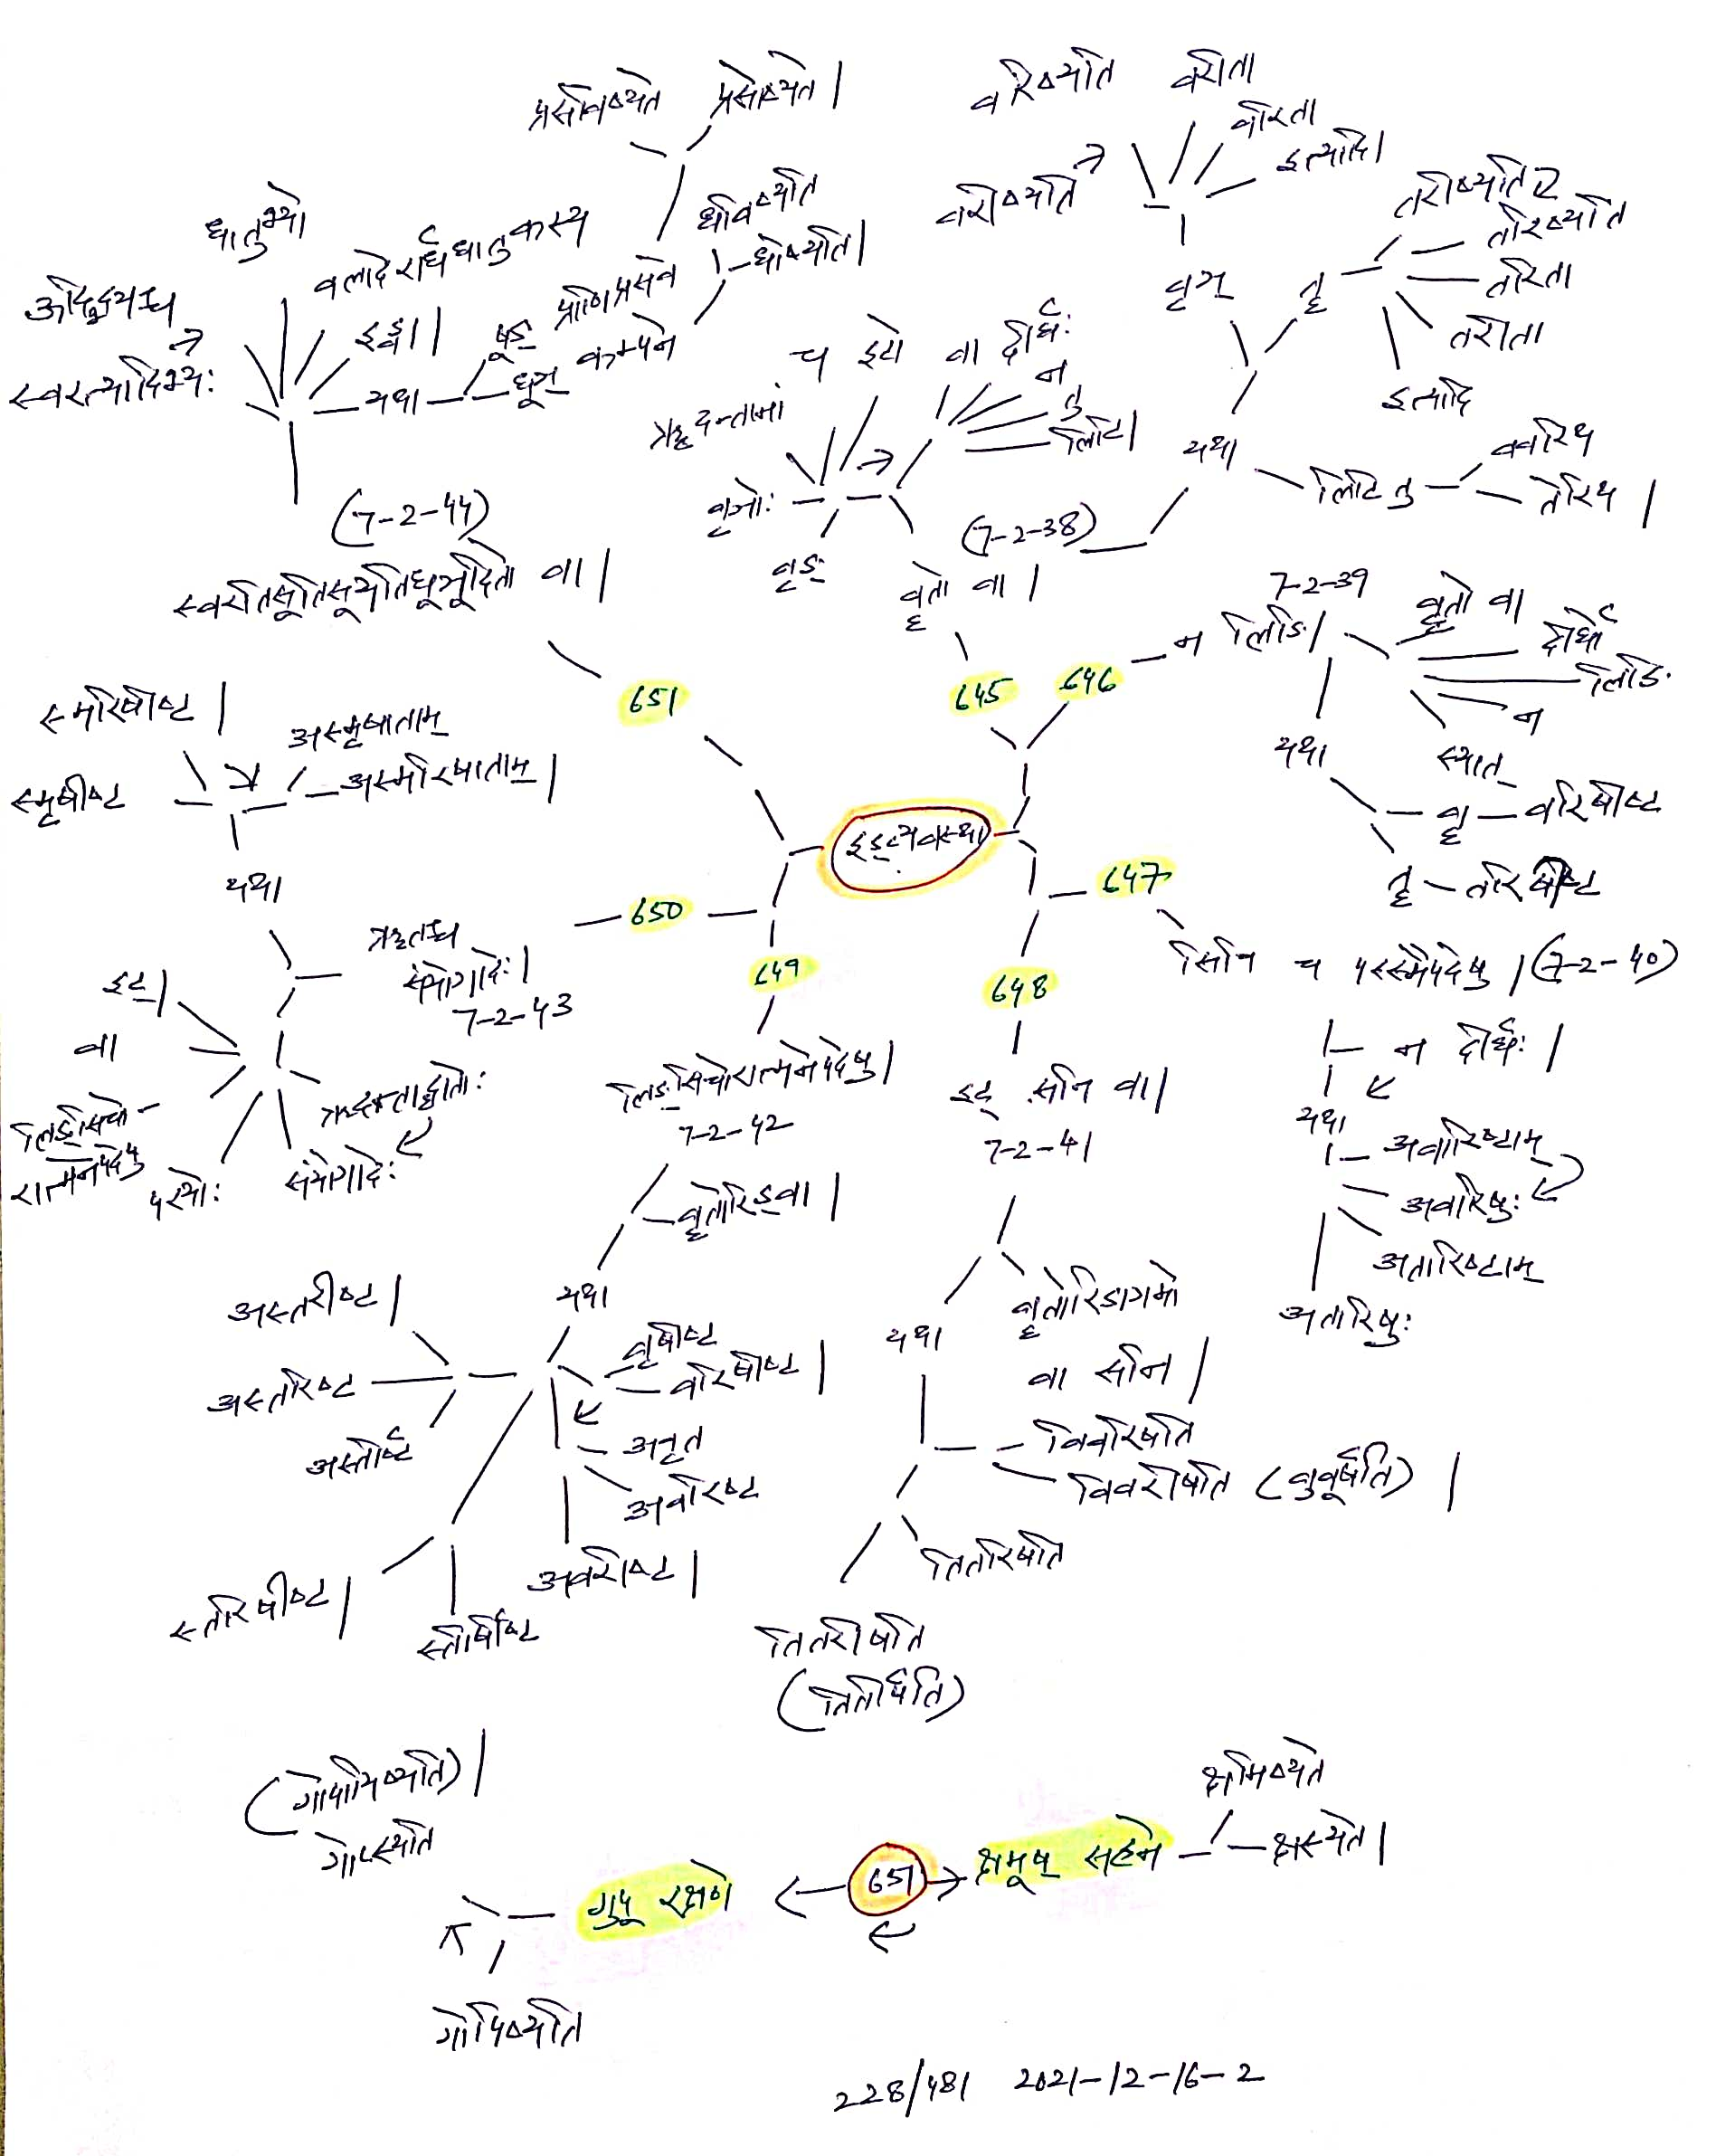 प्रसविष्यते प्रसोष्यते।
वरिष्यति वरीता
वरिता
इत्यादि।
वरीष्यति
धातुभ्यो
वलादेरार्धधातुकस्य
ऊदिद्भ्यश्च
स्वरत्यादिभ्यः
इड्वा।
यथा
षूङ् प्राणिप्रसवे
धूञ् कम्पने
धविष्यति
धोष्यति।
(7-2-44)
स्वरतिसूतिसूयतिधूञूदितो वा।
वृञ् तॄ
तरीष्यति
तरिष्यति
तरिता
तरीता
इत्यादि
यथा
लिटि तु
ववरिथ
तेरिथ।
च इटो वा दीर्घः
न
तु
लिटि।
ॠदन्तानां
वृञोः
वृङ्
(7-2-38)
वॄतो वा।
7-2-39
न लिङि।
वॄतो वा
दीर्घो
लिङि
न
स्यात्
यथा
वॄ - वरिषीष्ट
तॄ - तरिषीष्ट
651
645 646
स्मरिषीष्ट।
स्मृषीष्ट
अस्मृषाताम्
अस्मरिषाताम्।
यथा
इड्व्यवस्था
650
649
648
647
ऋतश्च
संयोगादेः।
7-2-43
इट्।
वा
लिङ्सिचो-
रात्मनेपदेषु
परयोः
ऋदन्ताद्धातोः
संयोगादेः
सिचि च परस्मैपदेषु। (7-2-40)
न दीर्घः।
यथा
अवारिष्टाम्
अवारिषुः
अतारिष्टाम्
अतारिषुः
लिङ्सिचोरात्मनेपदेषु।
7-2-42
वॄतोरिड्वा।
यथा
इट् सनि वा।
7-2-41
वॄतोरिडागमो
वा सनि।
यथा
विवरिषति
विवरीषति (वुवूर्षति)।
तितरिषति
तितरीषति
(तितीर्षति)
अस्तरीष्ट।
अस्तरिष्ट
अस्तीर्ष्ट
वृषीष्ट
वरिषीष्ट।
अवृत
अवरिष्ट
अवरीष्ट।
स्तरिषीष्ट।
स्तीर्षीष्ट
(गोपायिष्यति)।
गोप्स्यति
गुपू रक्षणे
651
क्षमूष् सहने
क्षमिष्यते
क्षंस्यते।
गोपिष्यति
228/481 2021-12-16-2